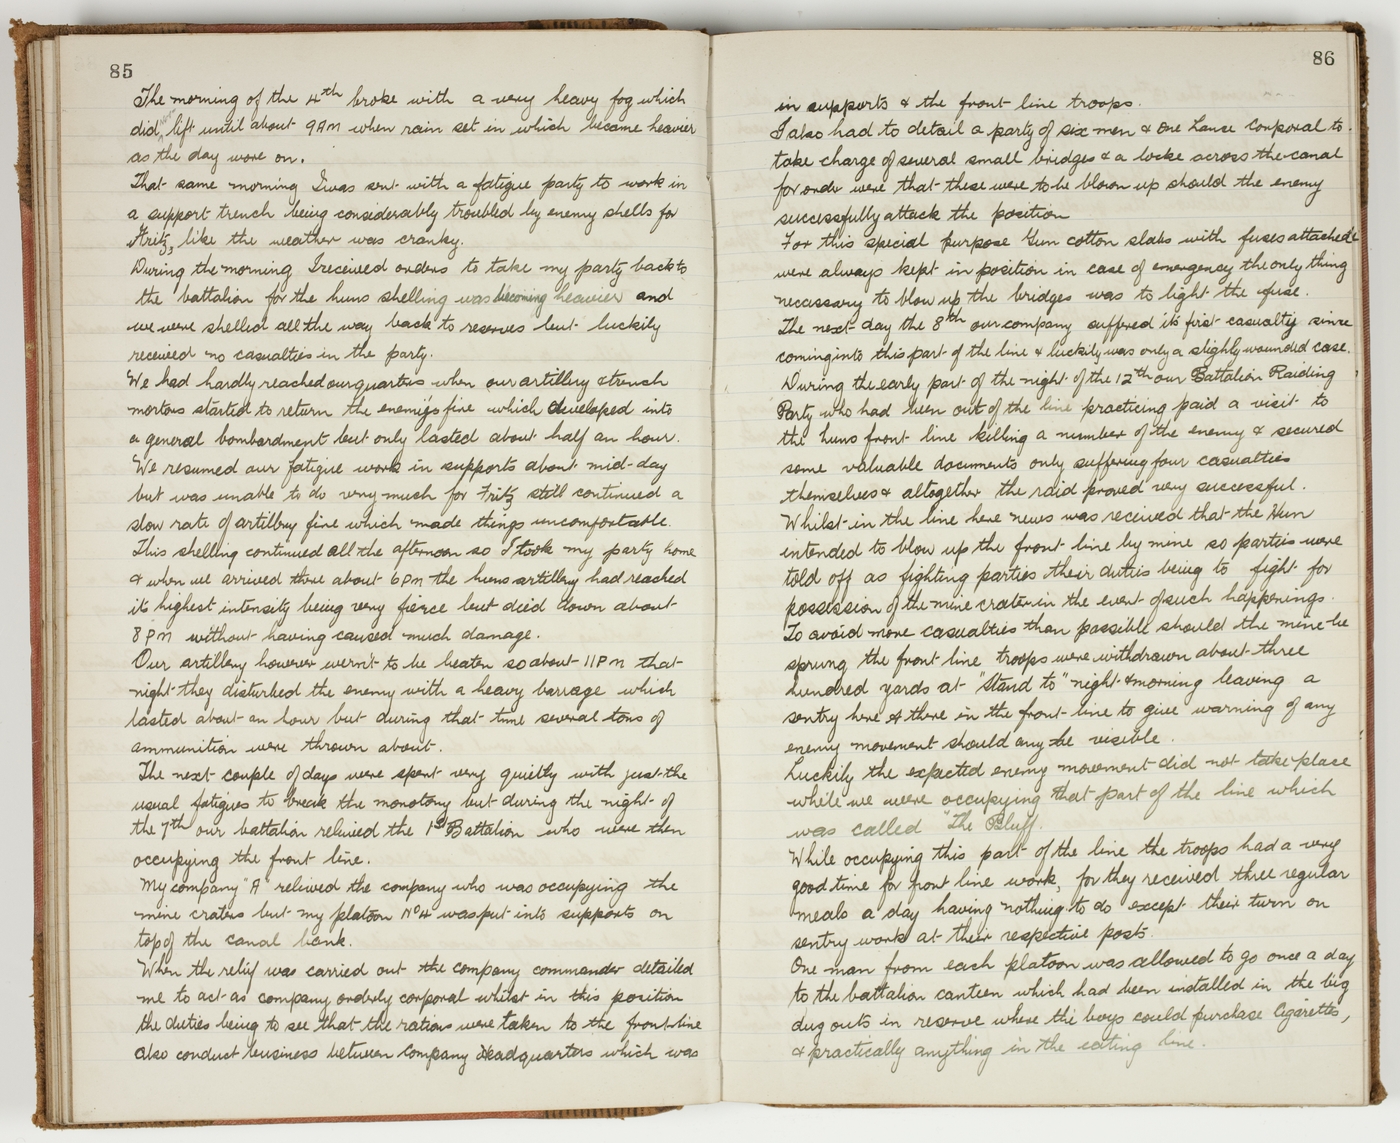 85
The morning of the 4th broke with a very heavy fog which
did not lift until about 9 AM when rain set in which became heavier
as the day wore on.
That same morning I was sent with a fatigue party to work in
a support trench being considerably troubled by enemy shells for
Fritz, like the weather was cranky.
During the morning I received orders to take my party back to
the battalion for the huns shelling was becoming heavier and
we were shelled all the way back to reserves but luckily
received no casualties in the party.
We had hardly reached our quarters when our artillery & trench
mortars started to return the enemy's fire which developed into
a general bombardment but only lasted about half an hour.
We resumed our fatigue work in supports about mid-day
but was unable to do very much for Fritz still continued a
slow rate of artillery fire which made things uncomfortable.
This shelling continued all the afternoon so I took my party home
& when we arrived there about 6 pm the huns artillery had reached
its highest intensity being very fierce but died down about
8 pm without having caused much damage.
Our artillery however wern't to be beaten so about 11 Pm that
night they disturbed the enemy with a heavy barrage which
lasted about an hour but during that time several tons of
ammunition were thrown about.
The next couple of days were spent very quietly with just the
usual fatigues to break the monotony but during the night of
the 7th our battalion relieved the 1st Battalion who were then
occupying the front line.
My company "A" relieved the company who was occupying the
mine craters but my platoon No 4 was put into supports on
top of the canal bank.
When the relief was carried out the company commander detailed
me to act as company orderly corporal whilst in this position
the duties being to see that the rations were taken to the front line
also conduct business between Company Headquarters which was
86
in supports & the front line troops.
I also had to detail a party of six men & one Lance Corporal to
take charge of several small bridges & a locke across the canal
for ordr were that these were to be blown up should the enemy
successfully attack the position
For this special purpose Gun cotton slabs with fuses attached
were always kept in position in case of emergency the only thing
necessary to blow up the bridges was to light the fuse.
The next day the 8th our company suffered its first casualty since
coming into this part of the line & luckily was only a slighly wounded case.
During the early part of the night of the 12th our Battalion Raiding
Party who had been out of the line practicing paid a visit to
the huns front line killing a number of the enemy & secured
some valuable documents only suffering four casualties
themselves & altogether the raid proved very successful.
Whilst in the line here news was received that the Hun
intended to blow up the front line by mine so parties were
told off as fighting parties their duties being to fight for
possession of the mine crater in the event of such happenings.
To avoid more casualties than possible should the mine be
sprung the front line troops were withdrawn about three
hundred yards at "Stand to" night & morning leaving a
sentry here & there in the front line to give warning of any
enemy movement should any be visible.
Luckily the expected enemy movement did not take place
while we were occupying that part of the line which
was called "The Bluff.
While occupying this part of the line the troops had a very
good time for front line work, for they received three regular
meals a day having nothing to do except their turn on
sentry work at their respective posts.
One man from each platoon was allowed to go once a day
to the battalion canteen which had been installed in the big
dug outs in reserve where the boys could purchase Cigarettes,
& practically anything in the eating line.